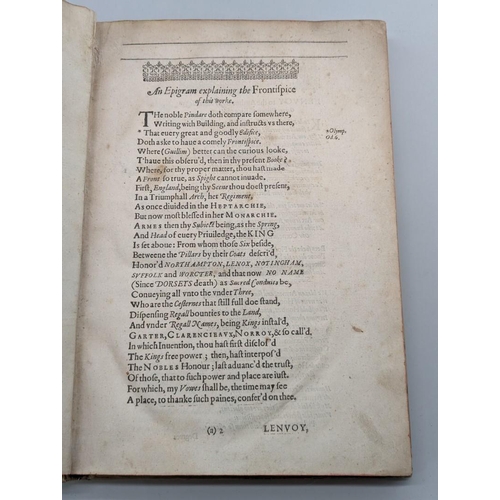 An Epigram explaining the Frontispice
of this worke.
THe noble Pindare doth compare somewhere,
Writing with Building, and instructs vs there,
* That euery great and goodly Edifice,
* Olymp.
Od. 6.
Doth aske to haue a comely Frontispice.
Where (Guillim) better can the curious looke,
T'haue this obseru'd, then in thy present Booke?
Where, for thy proper matter, thou hast made
A Front so true, as Spight cannot inuade.
First, England, being thy Scene thou doest present,
In a Triumphall Arch, her Regiment,
As once diuided in the HEPTARCHIE,
But now most blessed in her MONARCHIE.
ARMES then thy Subiect being, as the Spring,
And Head of euery Priuiledge, the KING
Is set aboue: From whom those Six beside,
Betweene the Pillars by their Coats descri'd,
Honor'd NORTHAMPTON, LENOX, NOTINGHAM,
SVFFOLK and WORCTER; and that now NO NAME
(Since 'DORSETS death) as Sacred Conduits be,
Conueying all vnto the vnder Three,
Who are the Cesternes that still full doe stand,
Dispensing Regall bounties to the Land,
And vnder Regall Names, being Kings instal'd,
GARTER, CLARENCIEAVX, NORROY, & so call'd.
In which Inuention, thou hast first disclos'd
The Kings free power; then, hast interpos'd
The NOBLES Honour; last aduanc'd the trust,
Of those, that to such power and place are iust.
For which, my Vowes shall be, the time may see
A place, to thanke such paines, confer'd on thee.
(a) 2 LENVOY,